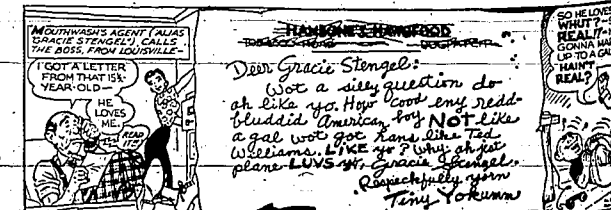 MOUTHWASH'S AGENT (ALIAS
"GRACIE STENGEL"), CALLS
THE BOSS, FROM LOUISVILLE—
I GOT A LETTER
FROM THAT 15½-
YEAR-OLD—
HE
LOVES
ME.
READ
IT!!
Deer Gracie Stengel:
Wot a silly question do
ah like yo. How cood eny redd-
bluddid American boy NOT like
a gal wot got hans like Ted
Williams. LIKE yo? Why ah jet
plane LUVS yo, Gracie Stengel.
Respeckfully yorn
Tiny Yokumm
SO HE LOVE
WHUT?-
REAL!!-
GONNA MA
UP TO A G
HAIN'T
REAL?